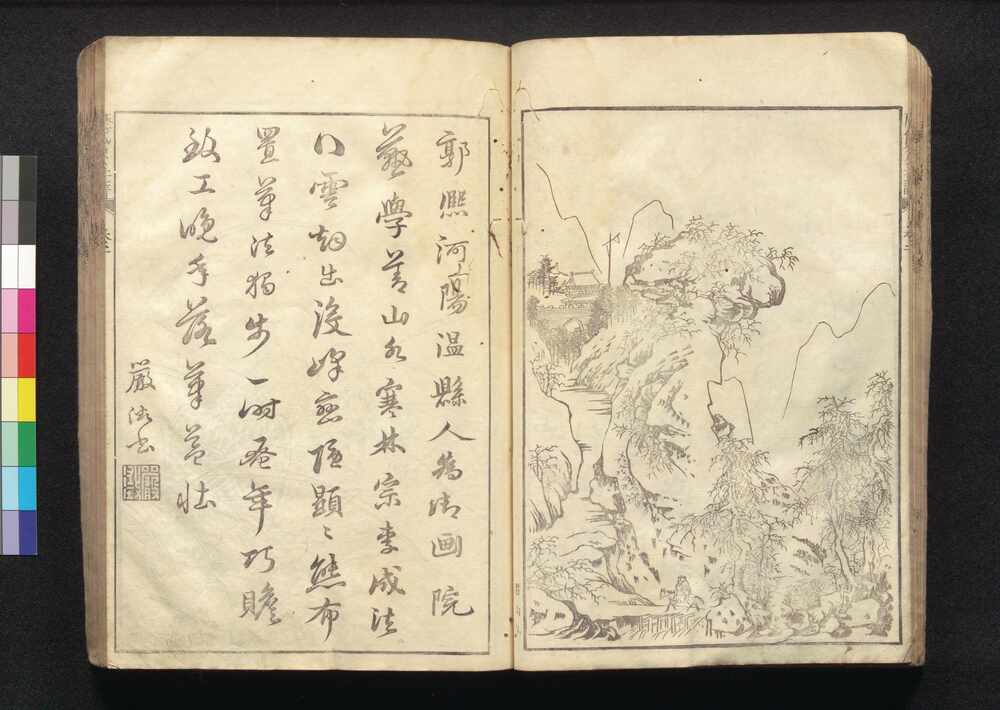 郭熈河陽温縣人為御画院
藝學善山水寒林宗李成法
得雲烟出没峰巒隱顯之態布
置筆法獨步一時早年巧贍
致工晩年落筆益壯
嚴 書